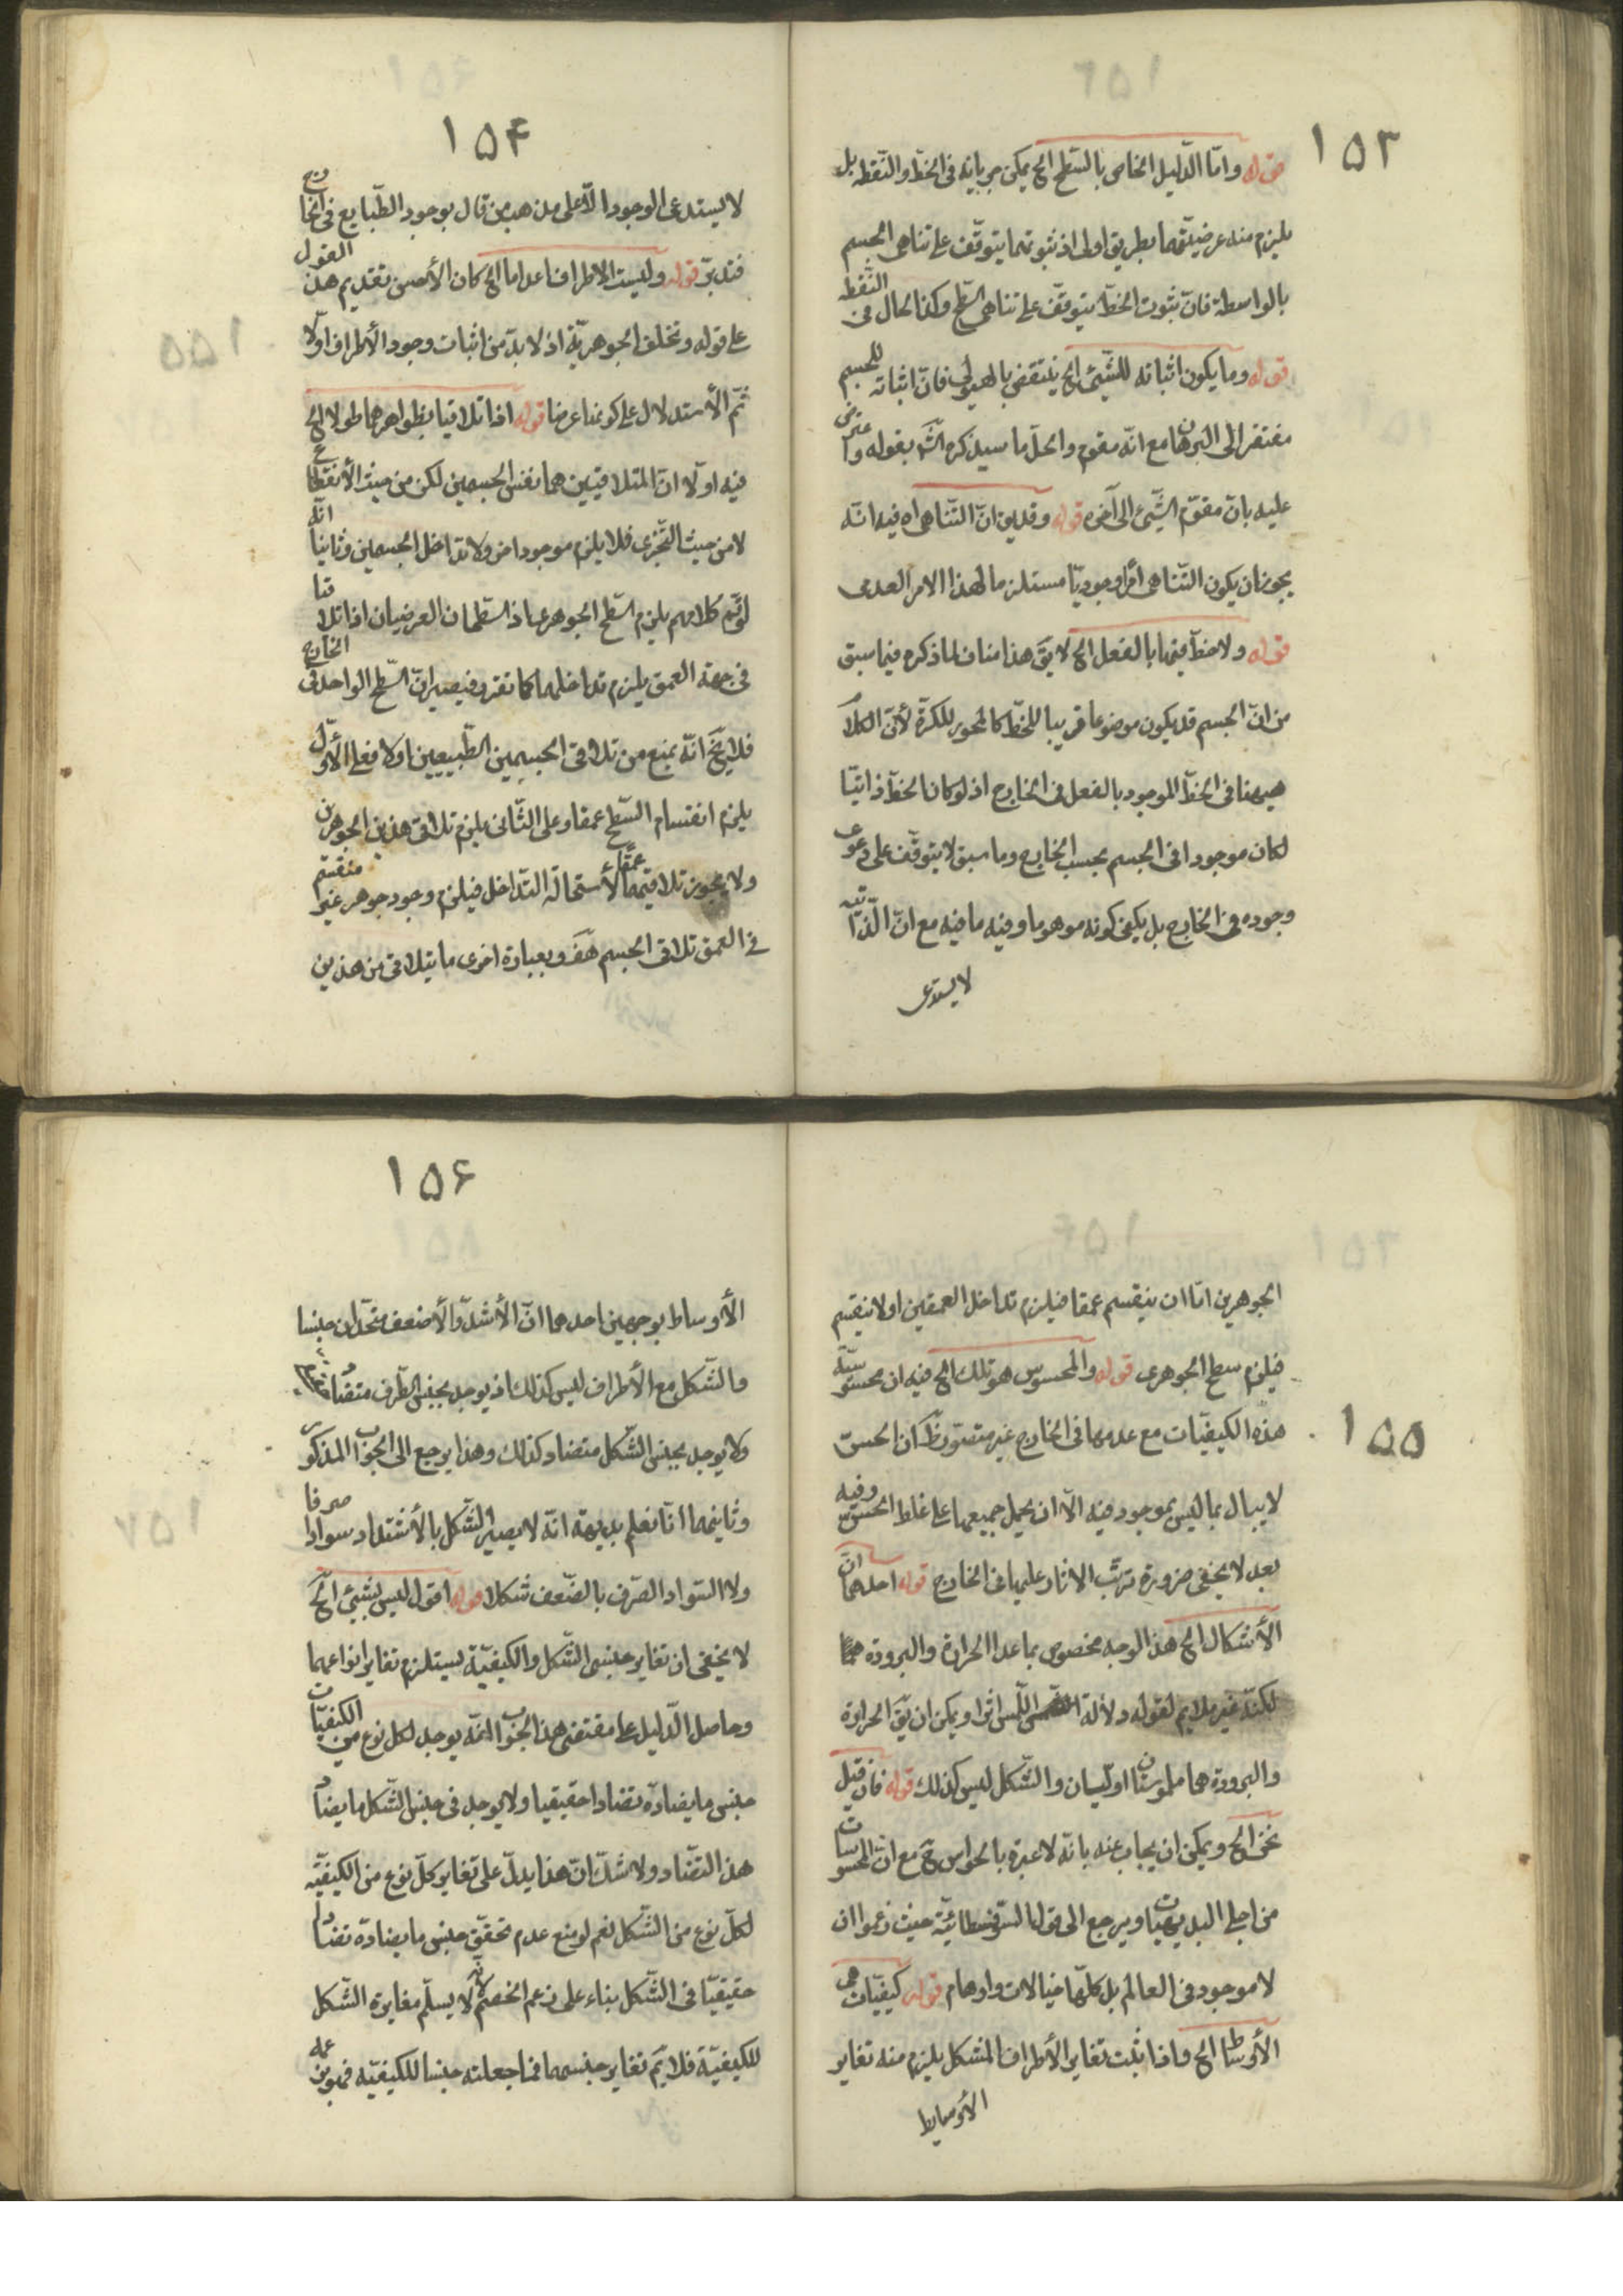 ١٥٣
قوله وامّا الدّليل الخاص بالسّطح الخ يمكن جريانه فى الخطّ والنّقطه بل
يلزم منه عرضيّتهما بطريق اولى اذ ثبوتهما يتوقّف على تناهى الجسم
بالواسطة فانّ ثبوت الخطّ يتوقّف على تناهى السّطح وكذا الحال فى النّقطه
قوله وما يكون اثباته للشّيئ الخ ينتقض بالهيولى فانّ اثباته للجسم
مفتقر الى البرهان مع انّه مقوم والحلّ ما سيذكره الشّ بقوله واعترض
عليه بانّ مقوّم الشّيئ الى آخره قوله وقد بين انّ التّناهى اه فيه انّه
يجوز ان يكون التّناهى امرا وجوديّا مستلزما لهذا الامر العدمى
قوله ولا خطّ فيها بالفعل الخ لا يقَ هذا مناف لما ذكره فيما سبق
من انّ الجسم قد يكون موضوعا قريبا للخطّ كالمحور للكرة لأنّ الكلام
هيهنا فى الخطّ الموجود بالفعل فى الخارج اذ لو كان الخطّ ذاتيّا
لكان موجودا فى الجسم بحسب الخارج وما سبق لا يتوقّف على دعوى
وجوده فى الخارج بل يكفى كونه موهوما وفيه ما فيه مع انّ الذّاتيه
لا يستدعى
١٥۴
لا يستدعى الوجود الّا على مذهب من قال بوجود الطّبايع فى الخارج
فتدبّر قوله وليست الاطراف اعداما الخ كان الأحسن تقديم هذا القول
على قوله وتخلف الجوهريّة اذ لا بدّ من اثبات وجود الأطراف اوّلا
ثمّ الأستدلال على كونها عرضا قوله اذا تلاقيا بظواهرهما طولا الخ
فيه اوّلا انّ المتلاقيين هما نفس الجسمين لكن من حيث الأنقطاع
لا من حيث التّجزى فلا يلزم موجود اخر ولا تداخل الجسمين وثانيا انّه
لو تمّ كلامهم يلزم السّطح الجوهرى اذ السّطحان العرضيان اذا تلاقيا
فى جهة العمق يلزم تداخلهما كما تقرر فيصير انّ السّطح الواحد فى الخارج
فلا يخَ انّه يمنع من تلاقى الجسمين الطّبيعيين اولا فعلى الأوّل
يلزم انقسام السّطح عمقا وعلى الثّانى يلزم تلاقى هذين الجوهرين
ولا يجوز تلاقيهما عمقًا لأستحالة التّداخل فيلزم وجود جوهر غير منقسم
فى العمق تلاقى الجسم هفَ وبعبارة اخرى ما يتلاقى من هذين
١٥٥
الجوهرين امّا ان ينقسم عمقا فيلزم تداخل العمقين اولا ينقسم
فيلزم سطح الجوهرى قوله والمحسوس هو تلك الخ فيه ان محسوسيّة
هذه الكيفيّات مع عدمها فى الخارج غير متصوّر كان الحسّ
لا يبال بما ليس بموجود فيه الّا ان يحمل جميعها على غلط الحسّ وفيه
بعد لا يخفى ضرورة ترتّب الاثار عليها فى الخارج قوله احدهما انّ
الأشكال الخ هذا الوجه مخصوص بما عدا الحرارة والبرودة
لكنّه غير ملايم لقوله دلالة اللّمس اثرا ويمكن ان يقَ الحرارة
والبرودة هما ملموستان اوّليتان والشّكل ليس كذلك قوله فان قيل
نحن الخ ويمكن ان يجاب عنه بانّه لا عبرة بالحواس حَ مع انّ المحسوسات
من اجلى البديهيات ويرجع الى قول السّوفسطائيّة حيث زعموا ان
لا موجود فى العالم بل كلّها خيالات واوهام قوله كيفيّات هى
الأوساط الخ واذا ثبت تغاير الأطراف المشكل يلزم منه تغاير
الأوساط
١٥۶
الأوساط بوجهين احدهما انّ الأشدّ والأضعف متّحدان جنسا
والشّكل مع الأطراف ليس كذلك اذ يوجد بجنس الطّرف متضاد
ولا يوجد بجنس الشّكل متضاد كذلك وهذا يرجع الى الجواب المذكور
وثانيهما انّا نعلم بديهة انّه لا يصير الشّكل بالأشتداد سوادا صرفا
ولا السّواد الصّرف بالضّعف شكلا قوله اقول ليس بشيئ الخ
لا يخفى ان تغاير جنس الشّكل والكيفيّة يستلزم تغاير انواعهما
وحاصل الدّليل على مقتضى هذا الجواب انّه يوجد لكلّ نوع من الكيفيّات
جنس ما يضادّه تضادا حقيقيا ولا يوجد فى جنس الشّكل ما يضاد
هذا التضّاد ولا شكّ انّ هذا يدلّ على تغاير كلّ نوع من الكيفيّه
لكلّ نوع من الشّكل نعم لو منع عدم تحقّق جنس ما يضادّه تضادا
حقيقيّا فى الشّكل بناء على زعم الخصم لانّه لا يسلّم مغايرة الشّكل
للكيفيّة فلا يتمّ تغاير جنسهما فما جعلته جنسا للكيفيّه فهو بزعمه